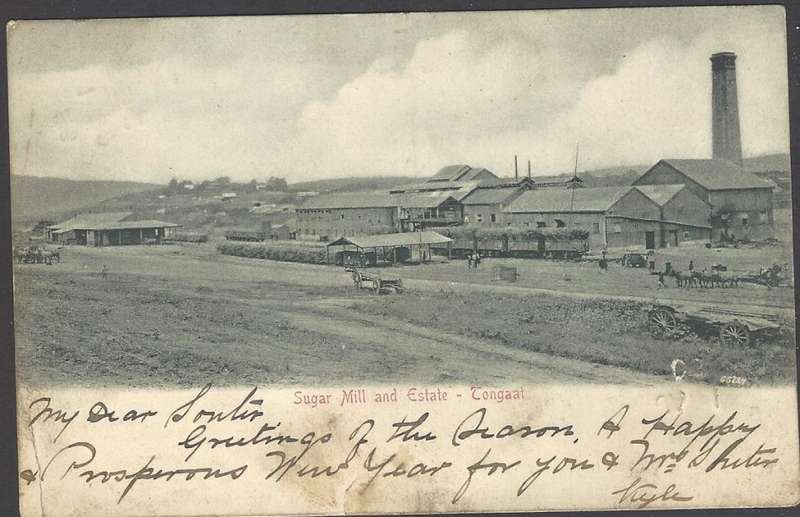 06224
Sugar Mill and Estate - Tongaat
My Dear Souter
Greetings of the Season. A Happy
& Prosperous New Year for you & Mrs Souter
Kyle